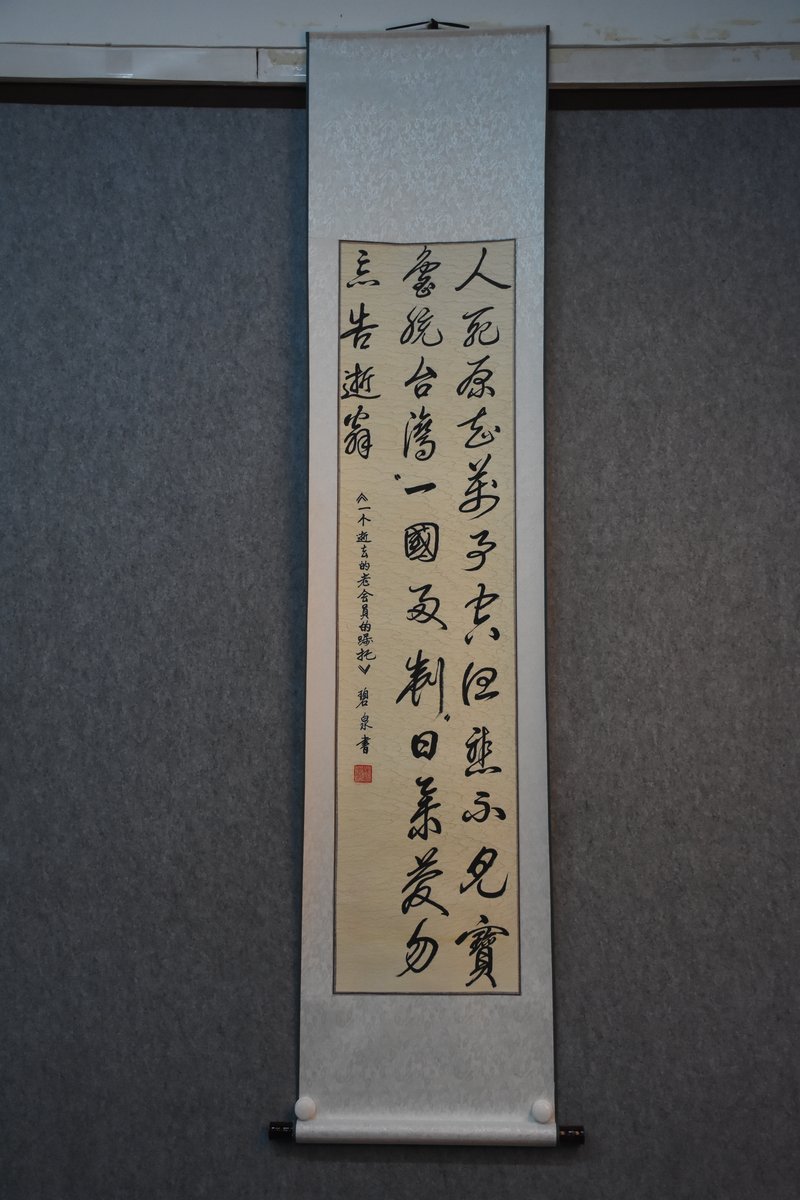 人死原知萬事空但悲不見寶
島統台灣“一國两制”日勿
忘告逝翁
《一个逝去的老会員的嘱托》 碧泉書